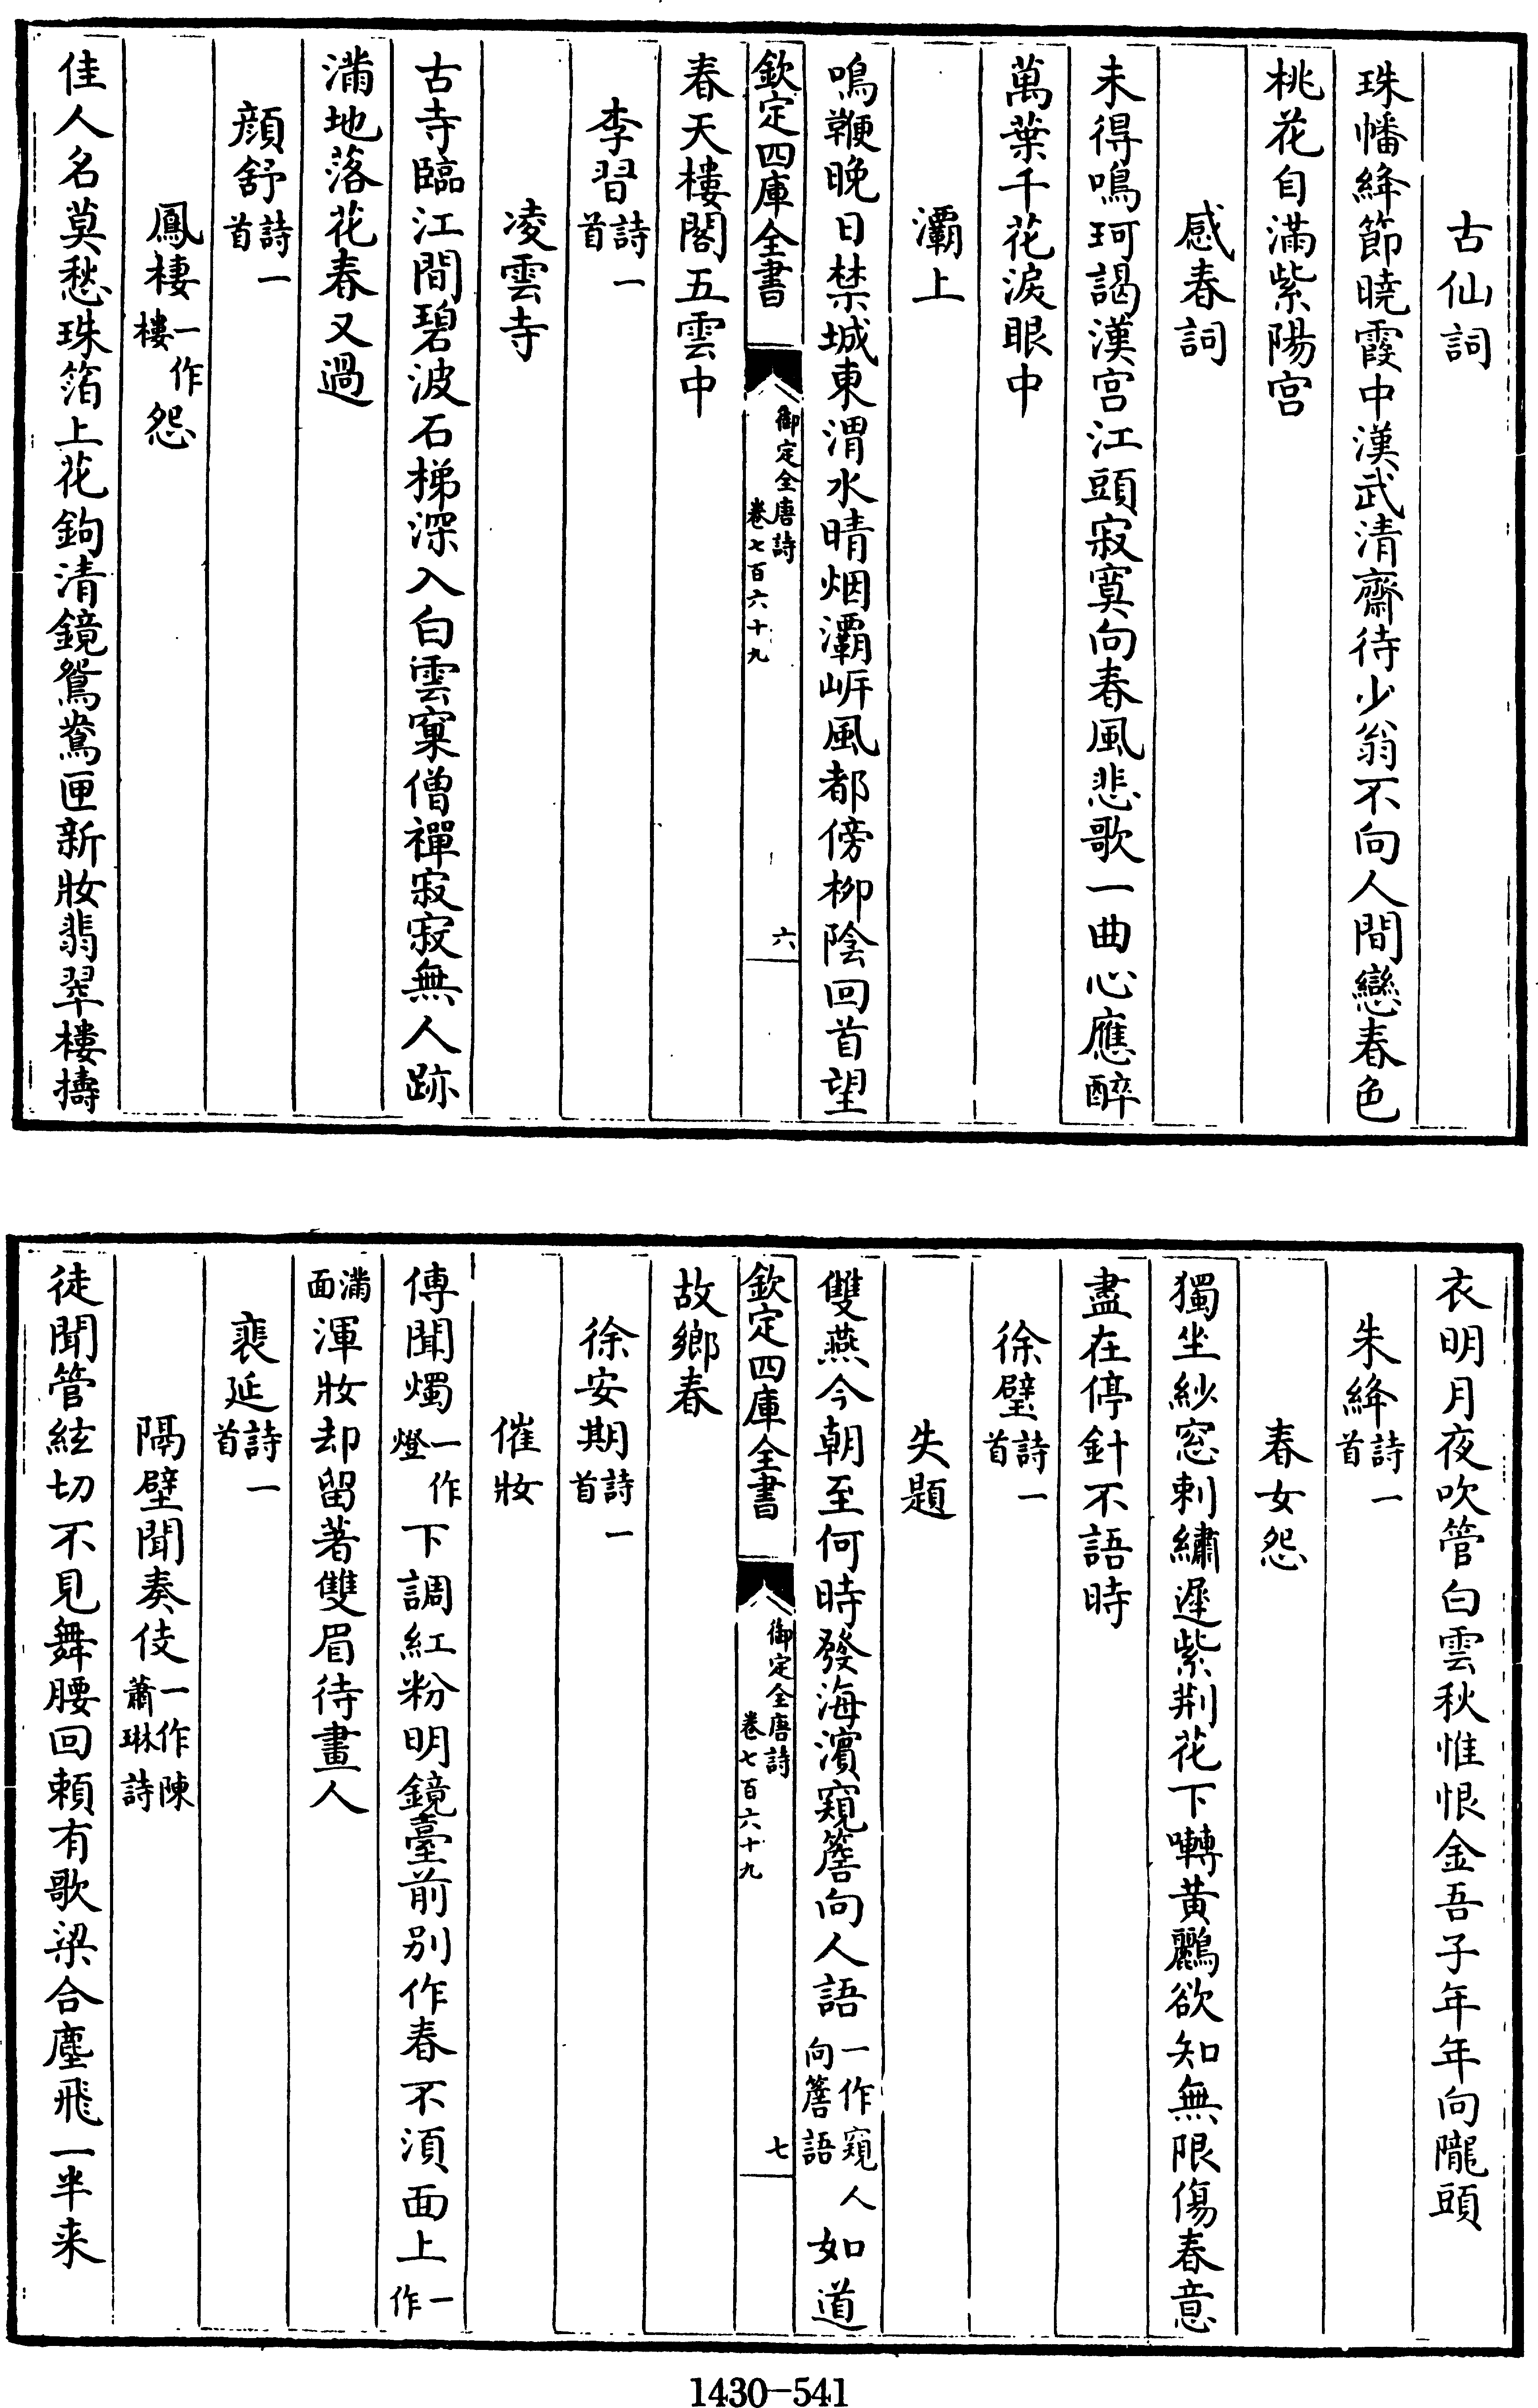 古仙詞
珠幡絳節曉霞中漢武清齋待少翁不向人間戀春色
桃花自滿紫陽宫
感春詞
未得鳴珂謁漢宫江頭寂寞向春風悲歌一曲心應醉
萬葉千花淚眼中
灞上
鳴鞭晚日禁城東渭水晴烟灞岍風都傍栁陰回首望
欽定四庫全書
御定全唐詩
卷七百六十九
六
春天樓閣五雲中
李習詩一首
凌雲寺
古寺臨江間碧波石梯深入白雲窠僧禪寂寂無人跡
滿地落花春又過
顔舒詩一首
鳳棲一作樓怨
佳人名莫愁珠箔上花鉤清鏡鴛鴦匣新妝翡翠樓擣
衣明月夜吹管白雲秋惟恨金吾子年年向隴頭
朱絳詩一首
春女怨
獨坐紗窓刺繡遲紫荆花下囀黄鸝欲知無限傷春意
盡在停針不語時
徐璧詩一首
失題
雙燕今朝至何時發海濱窺簷向人語一作窺人向簷語如道
欽定四庫全書
御定全唐詩
卷七百六十九
七
故鄉春
徐安期詩一首
催妝
傳聞燭一作燈下調紅粉明鏡臺前别作春不湏面上一作
滿面渾妝却留著雙眉待畫人
裴延詩一首
隔壁聞奏伎一作陳蕭琳詩
徒聞管絃切不見舞腰回頼有歌梁合塵飛一半来
1430-541